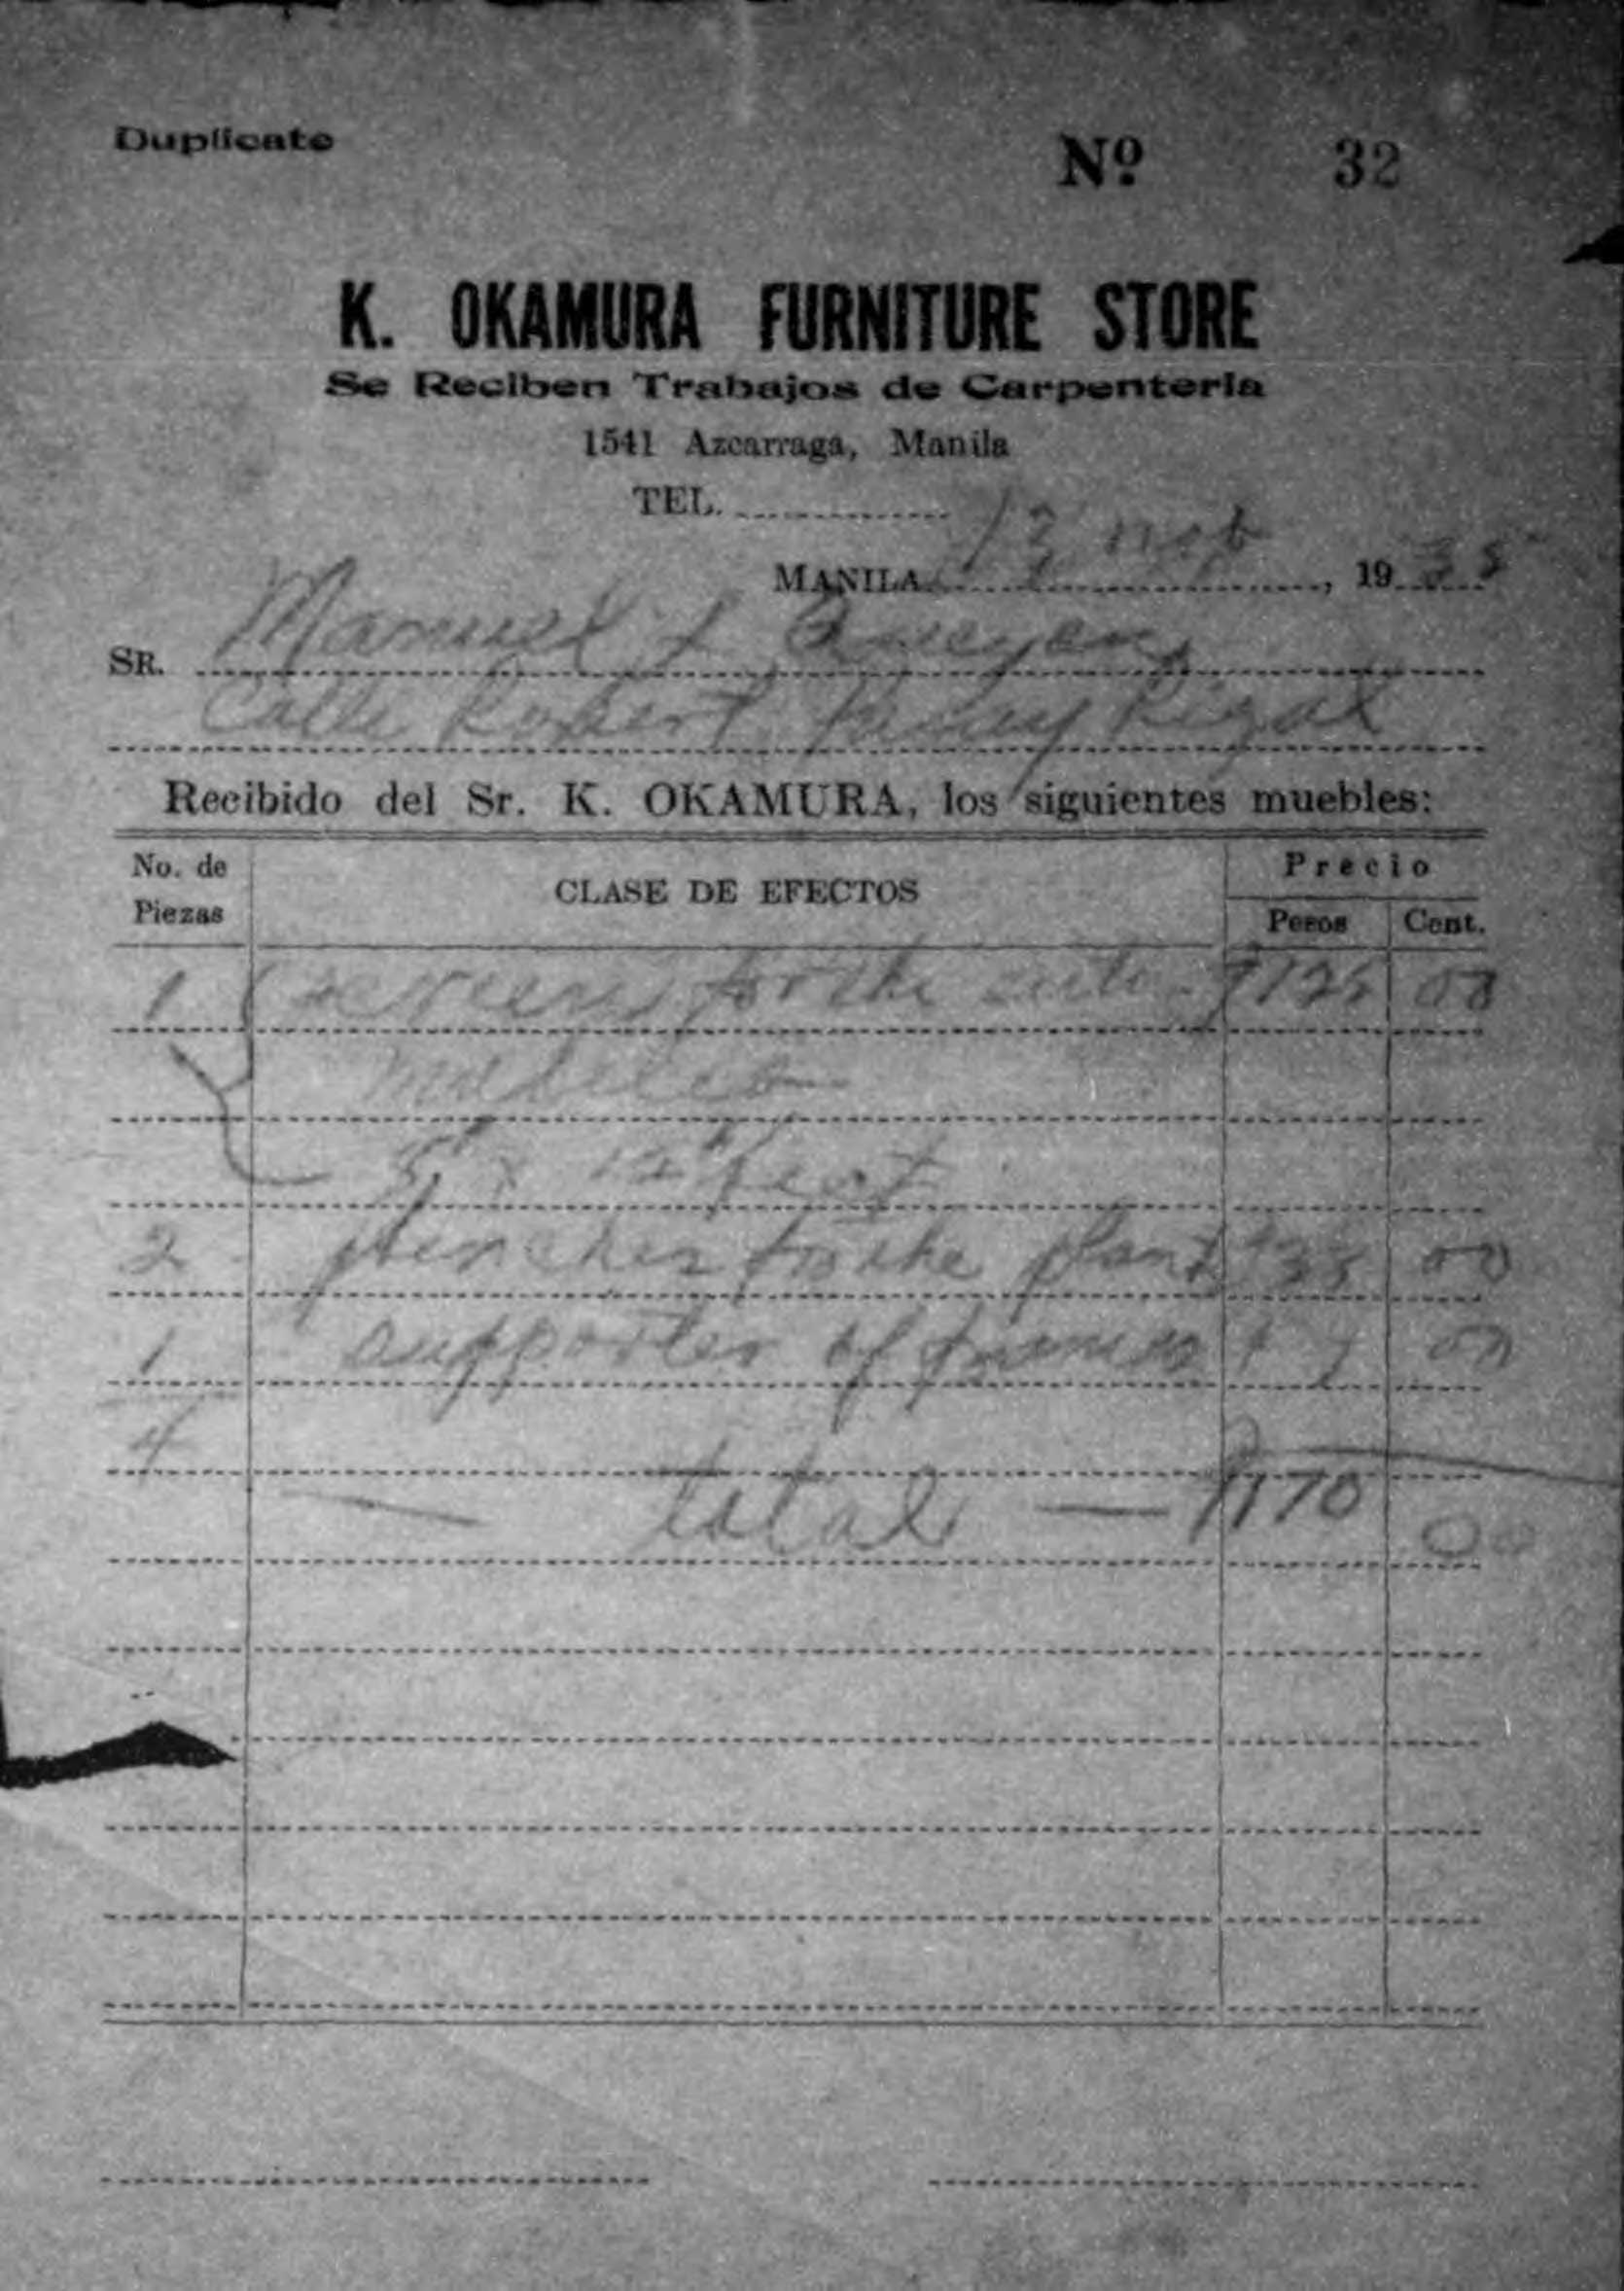 Duplicate
Nº 32
K. OKAMURA FURNITURE STORE
Se Reciben Trabajos de Carpenteria
1541 Azcarraga, Manila
TEL.
MANILA 13, 19
SR. Manuel
Calle Robert, Pasay Rizal
Recibido del Sr. K. OKAMURA, los siguientes muebles:
No. de Piezas CLASE DE EFECTOS Precio
Pesos Cent.
1 for the ₱125 00
5 x 12 feet
2 benches for the plant 00
1 supporter of 00
4
total — ₱170 00